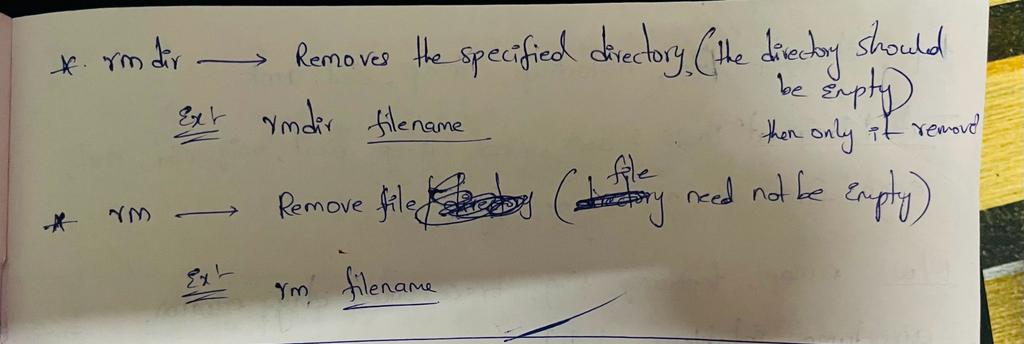 * rmdir → Removes the specified directory, (the directory should
be Empty)
then only it remove
Ex:- rmdir filename
* rm → Remove file (file need not be Empty)
Ex:- rm filename